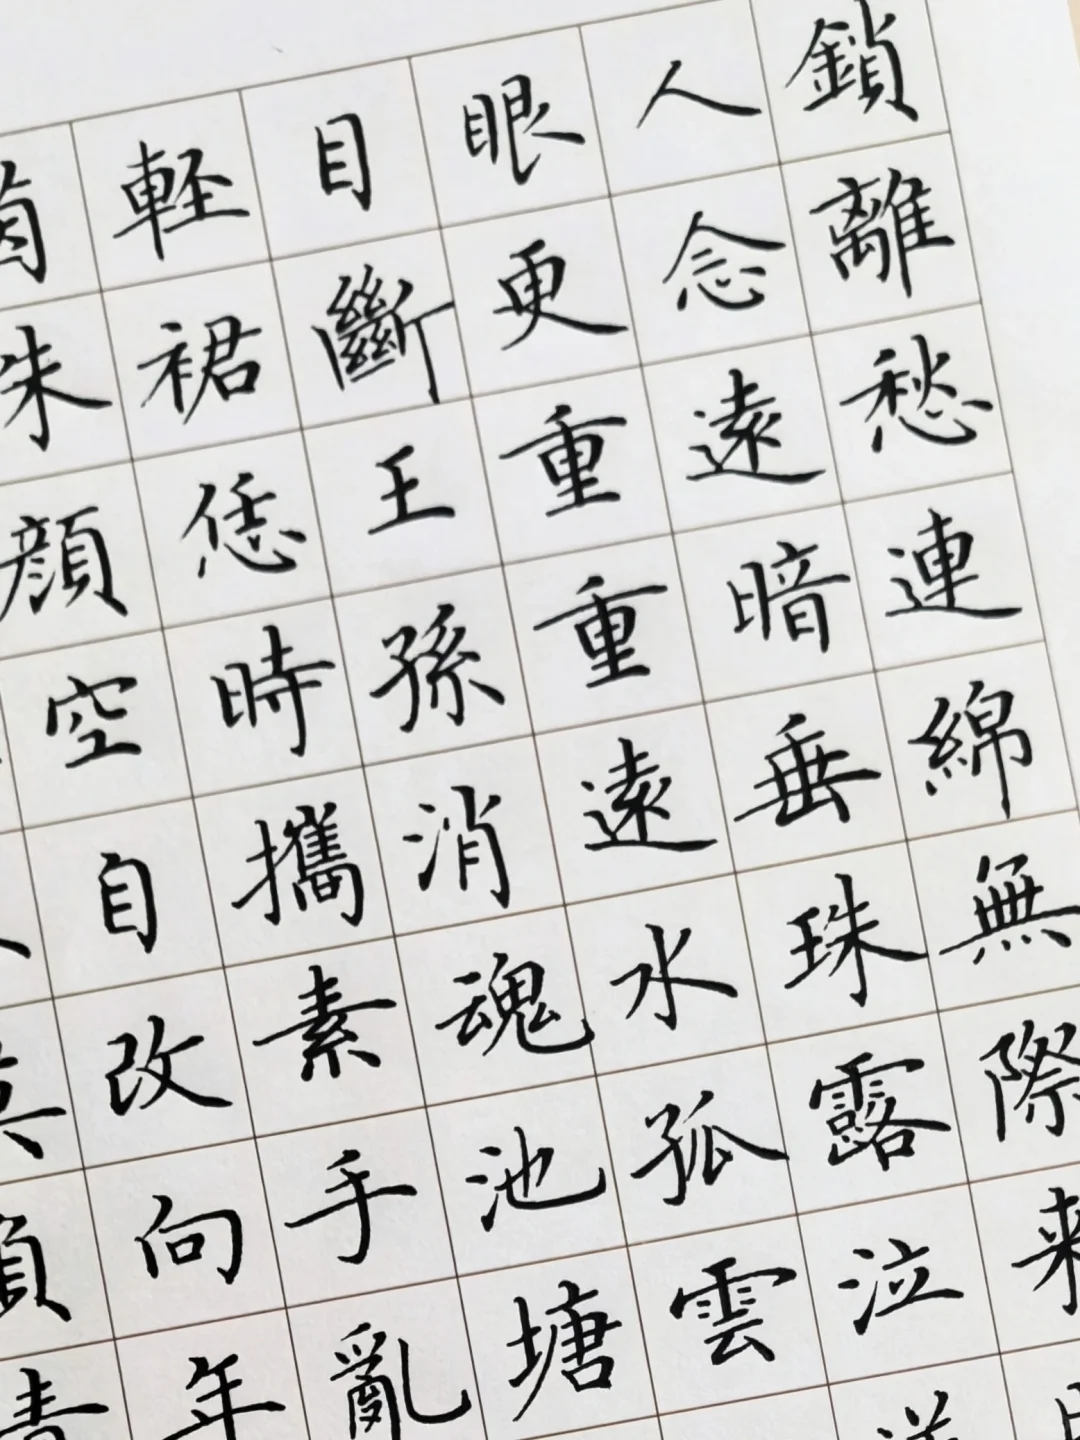 鎖離愁連綿無際来
人念遠暗垂珠露泣
眼更重重遠水孤雲
目斷王孫消魂池塘
軽裙恁時攜素手亂
空自改向年
朱顔